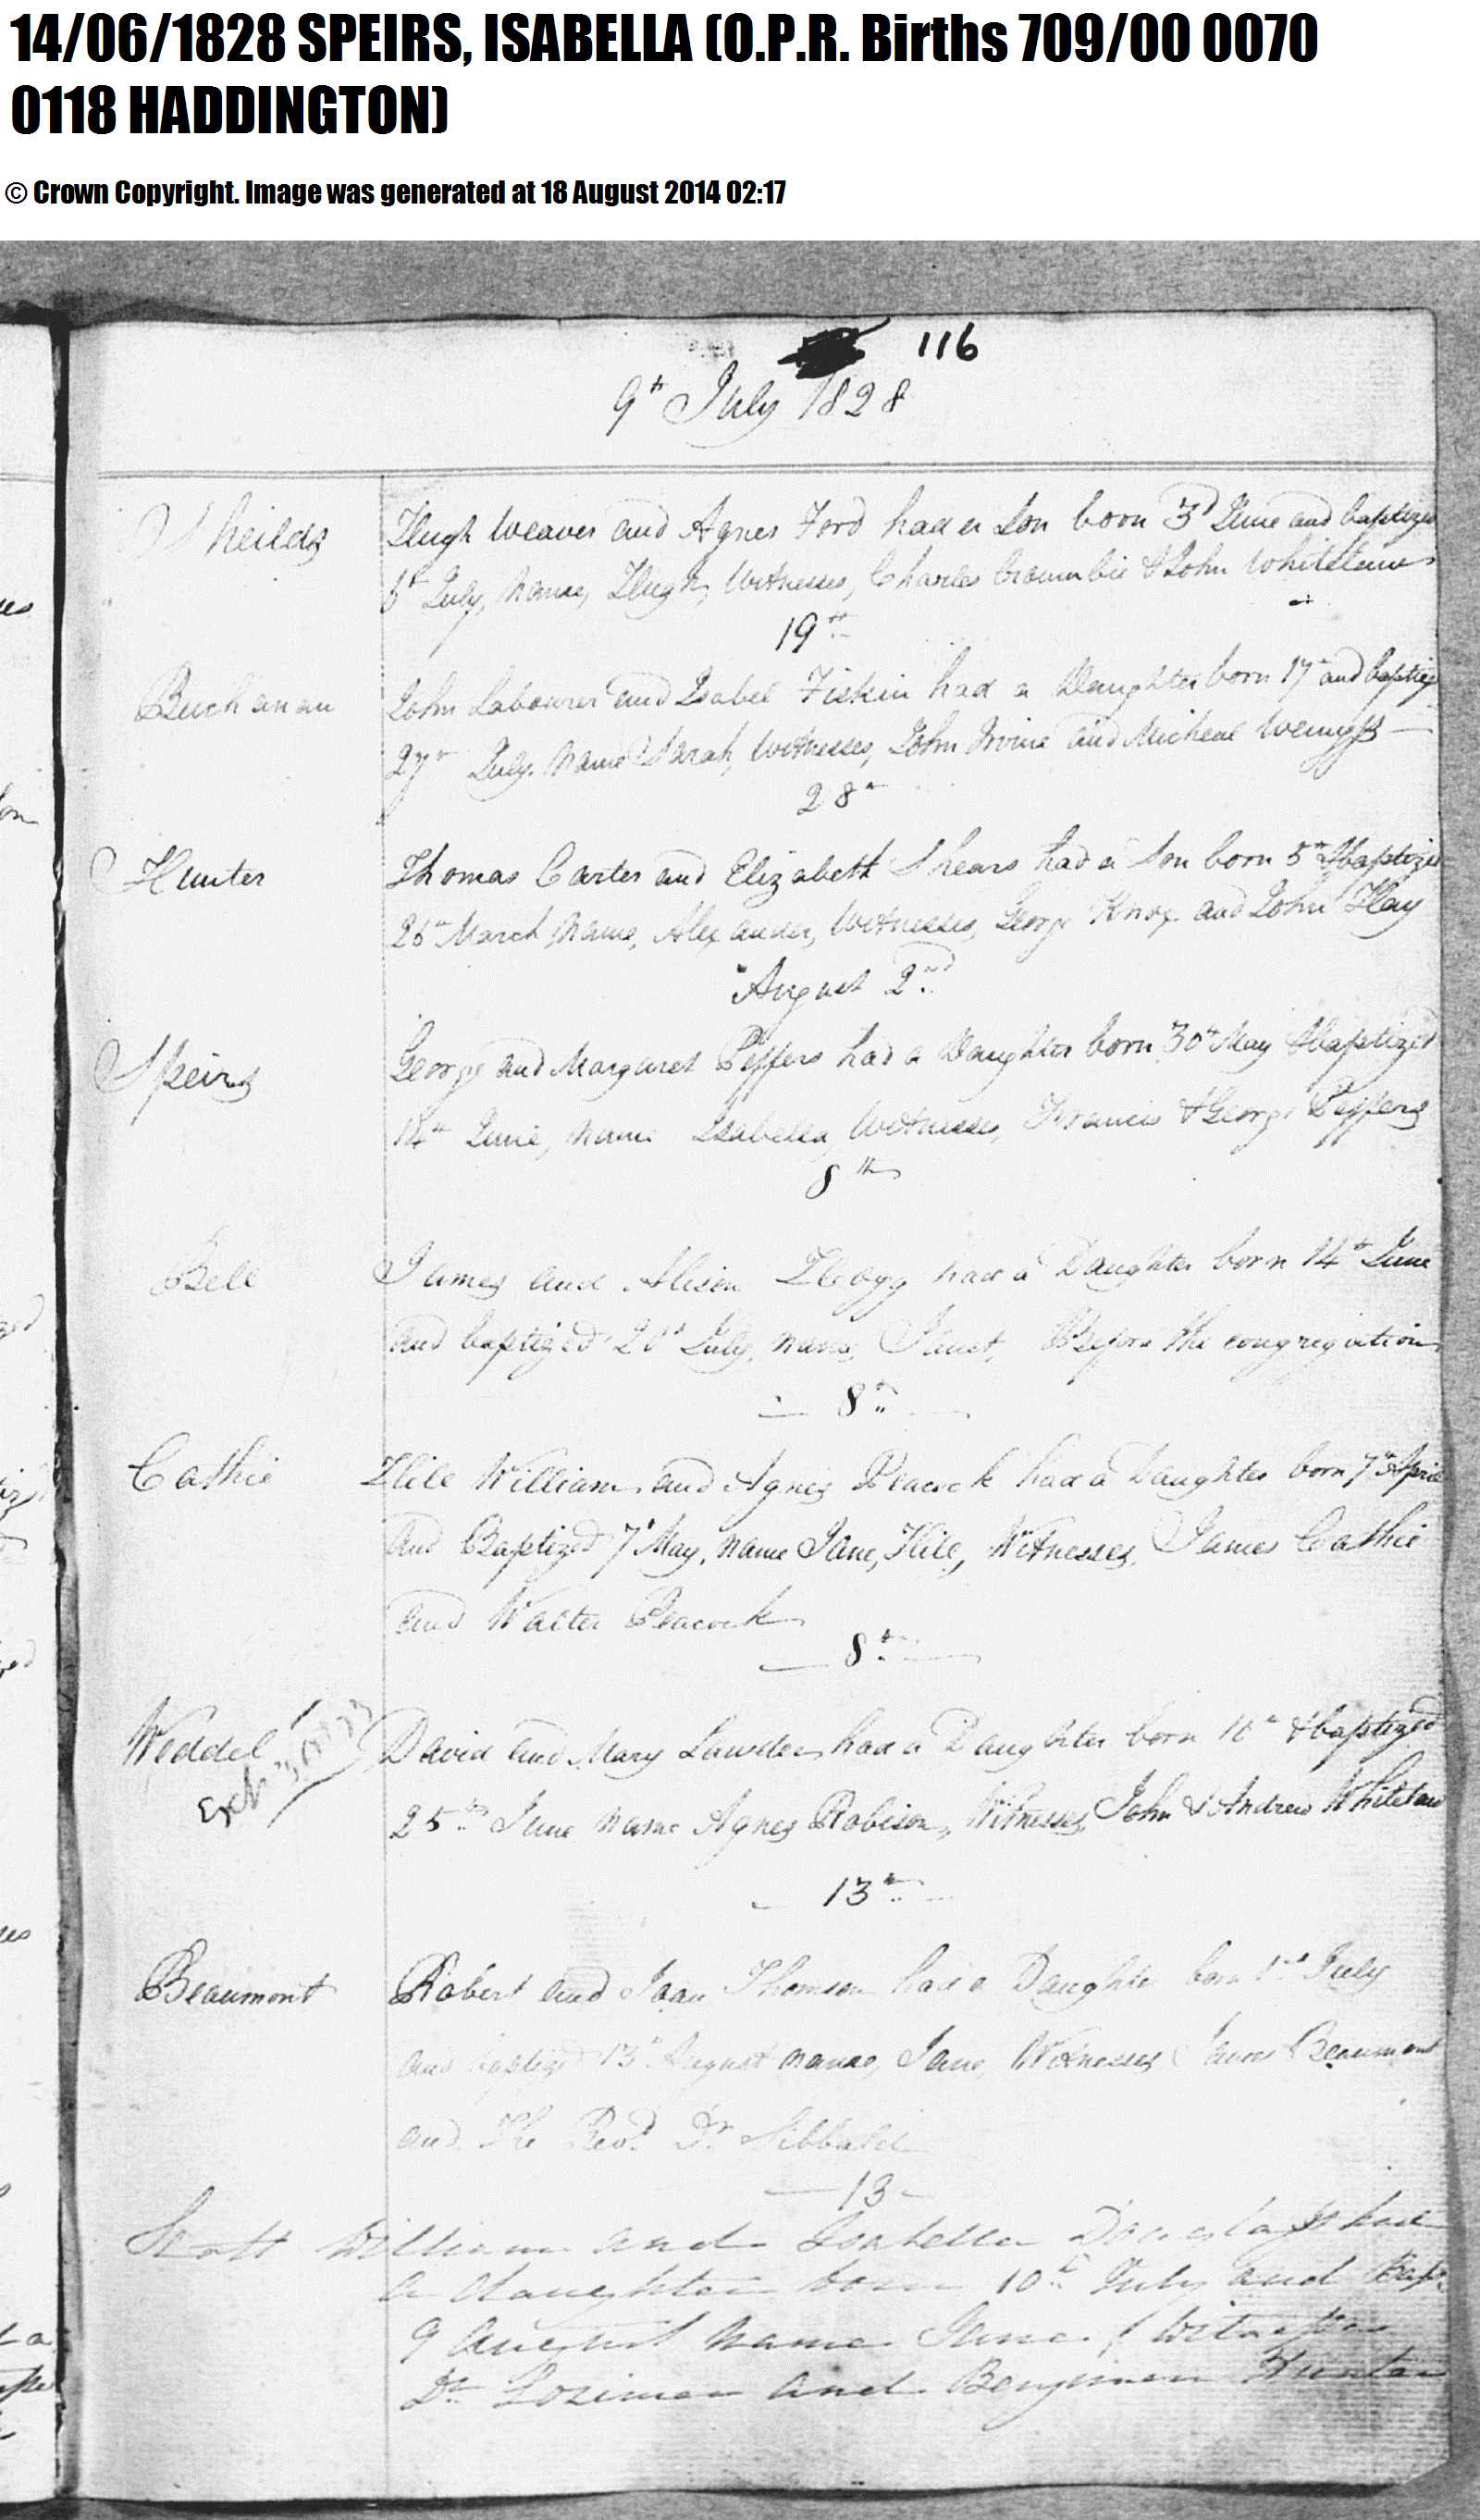 14/06/1828 SPEIRS, ISABELLA (O.P.R. Births 709/00 0070
0118 HADDINGTON)
© Crown Copyright. Image was generated at 18 August 2014 02:17
116
9th July 1828
Sheilds Hugh Weaver and Agnes Ford had a Son born 3d June and baptized
6th July, Name, Hugh, Witnesses, Charles Crombie & John Whitelaw
19th
Buchanan John Labourer and Isabel Fiskin had a Daughter born 17th and baptiz
27th July. Name Sarah, Witnesses, John Irvine and Micheal Wemyss
28th
Hunter Thomas Carter and Elizabeth Shears had a Son born 5th & baptized
25th March Name, Alexander, Witnesses, George Knox and John Hay
August 2nd
Speirs George and Margaret Peffers had a Daughter born 30th May & baptized
14th June, name Isabella, Witnesses, Francis & George Peffers
8th
Bell James and Alison Hogg had a Daughter born 14th June
and baptized 20th July, name, Janet, Before the congregation
8th
Cathie Hile William and Agnes Peacock had a Daughter born 7th April
and Baptized 7th May, name Jane, Hile, Witnesses, James Cathie
and Walter Peacock
8th
Weddel David and Mary Lawder had a Daughter born 10th & baptized
Ext
25th June name Agnes Robison, Witnesses, John & Andrew Whitelaw
13th
Beaumont Robert and Joan Thomson had a Daughter born 1st July
and baptized 13th August name, Jane, Witnesses James Beaumont
and The Revd. Dr Sibbald
13
Scott William and Isabella Douglass had
a daughter born 10th July and Bap
9 August Name Jane, Witnesses
Dr Lorimer and Benjimen Hunter